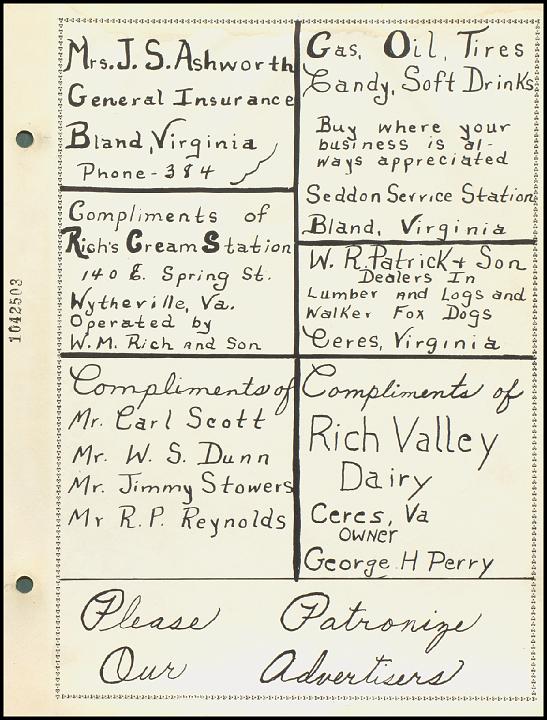 Mrs. J. S. Ashworth
General Insurance
Bland, Virginia
Phone - 384
Gas, Oil, Tires
Candy, Soft Drinks
Buy where your
business is al-
ways appreciated
Seddon Service Station
Bland, Virginia
Compliments of
Rich's Cream Station
140 E. Spring St.
Wytheville, Va.
Operated by
W. M. Rich and Son
W. R. Patrick & Son
Dealers In
Lumber and Logs and
Walker Fox Dogs
Ceres, Virginia
Compliments of
Mr. Carl Scott
Mr. W. S. Dunn
Mr. Jimmy Stowers
Mr R. P. Reynolds
Compliments of
Rich Valley
Dairy
Ceres, Va
Owner
George H Perry
Please Patronize
Our Advertisers
1042503